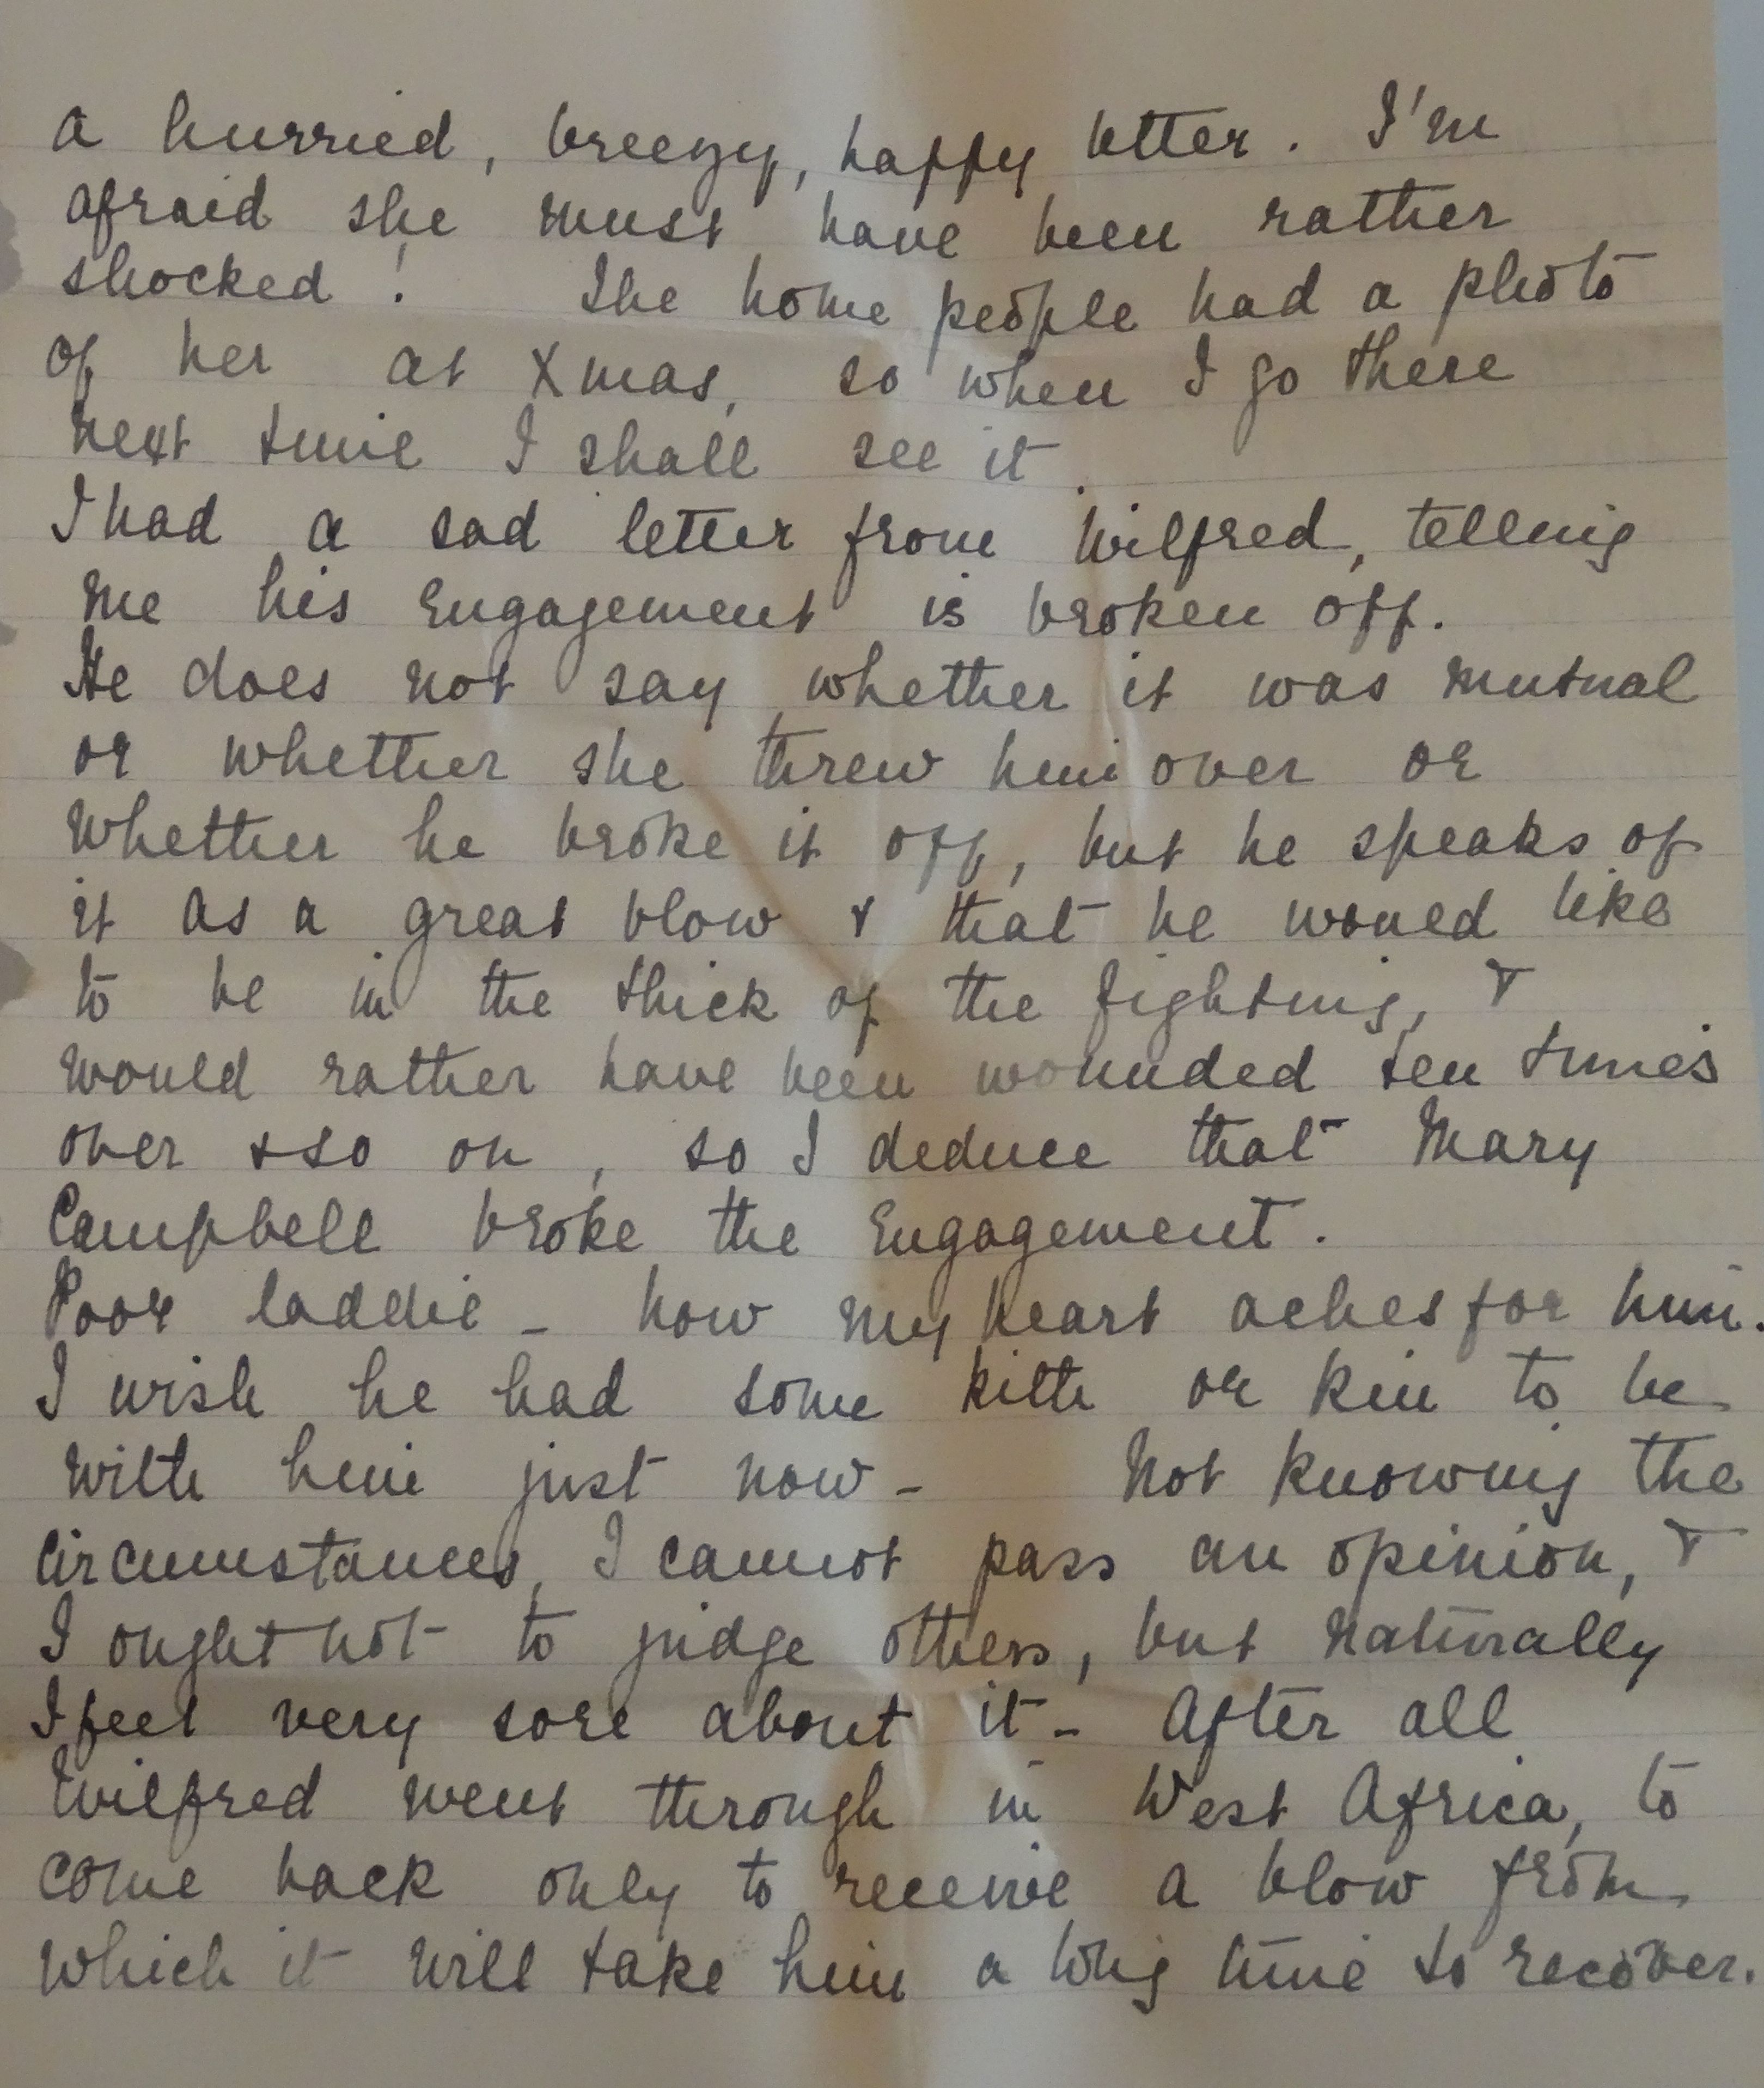 a hurried, breezy, happy letter. I'm
afraid she must have been rather
shocked! The home people had a photo
of her at Xmas, so when I go there
next time I shall see it.
I had a sad letter from Wilfred, telling
me his engagement is broken off.
He does not say whether it was mutual
or whether she threw him over or
whether he broke it off, but he speaks of
it as a great blow & that he would like
to be in the thick of the fighting, &
would rather have been wounded ten times
over & so on, so I deduce that Mary
Campbell broke the engagement.
Poor laddie - how my heart aches for him.
I wish he had some kith or kin to be
with him just now - Not knowing the
circumstances, I cannot pass an opinion, &
I ought not to judge others, but naturally
I feel very sore about it - After all
Wilfred went through in West Africa, to
come back only to receive a blow from
which it will take him a long time to recover.